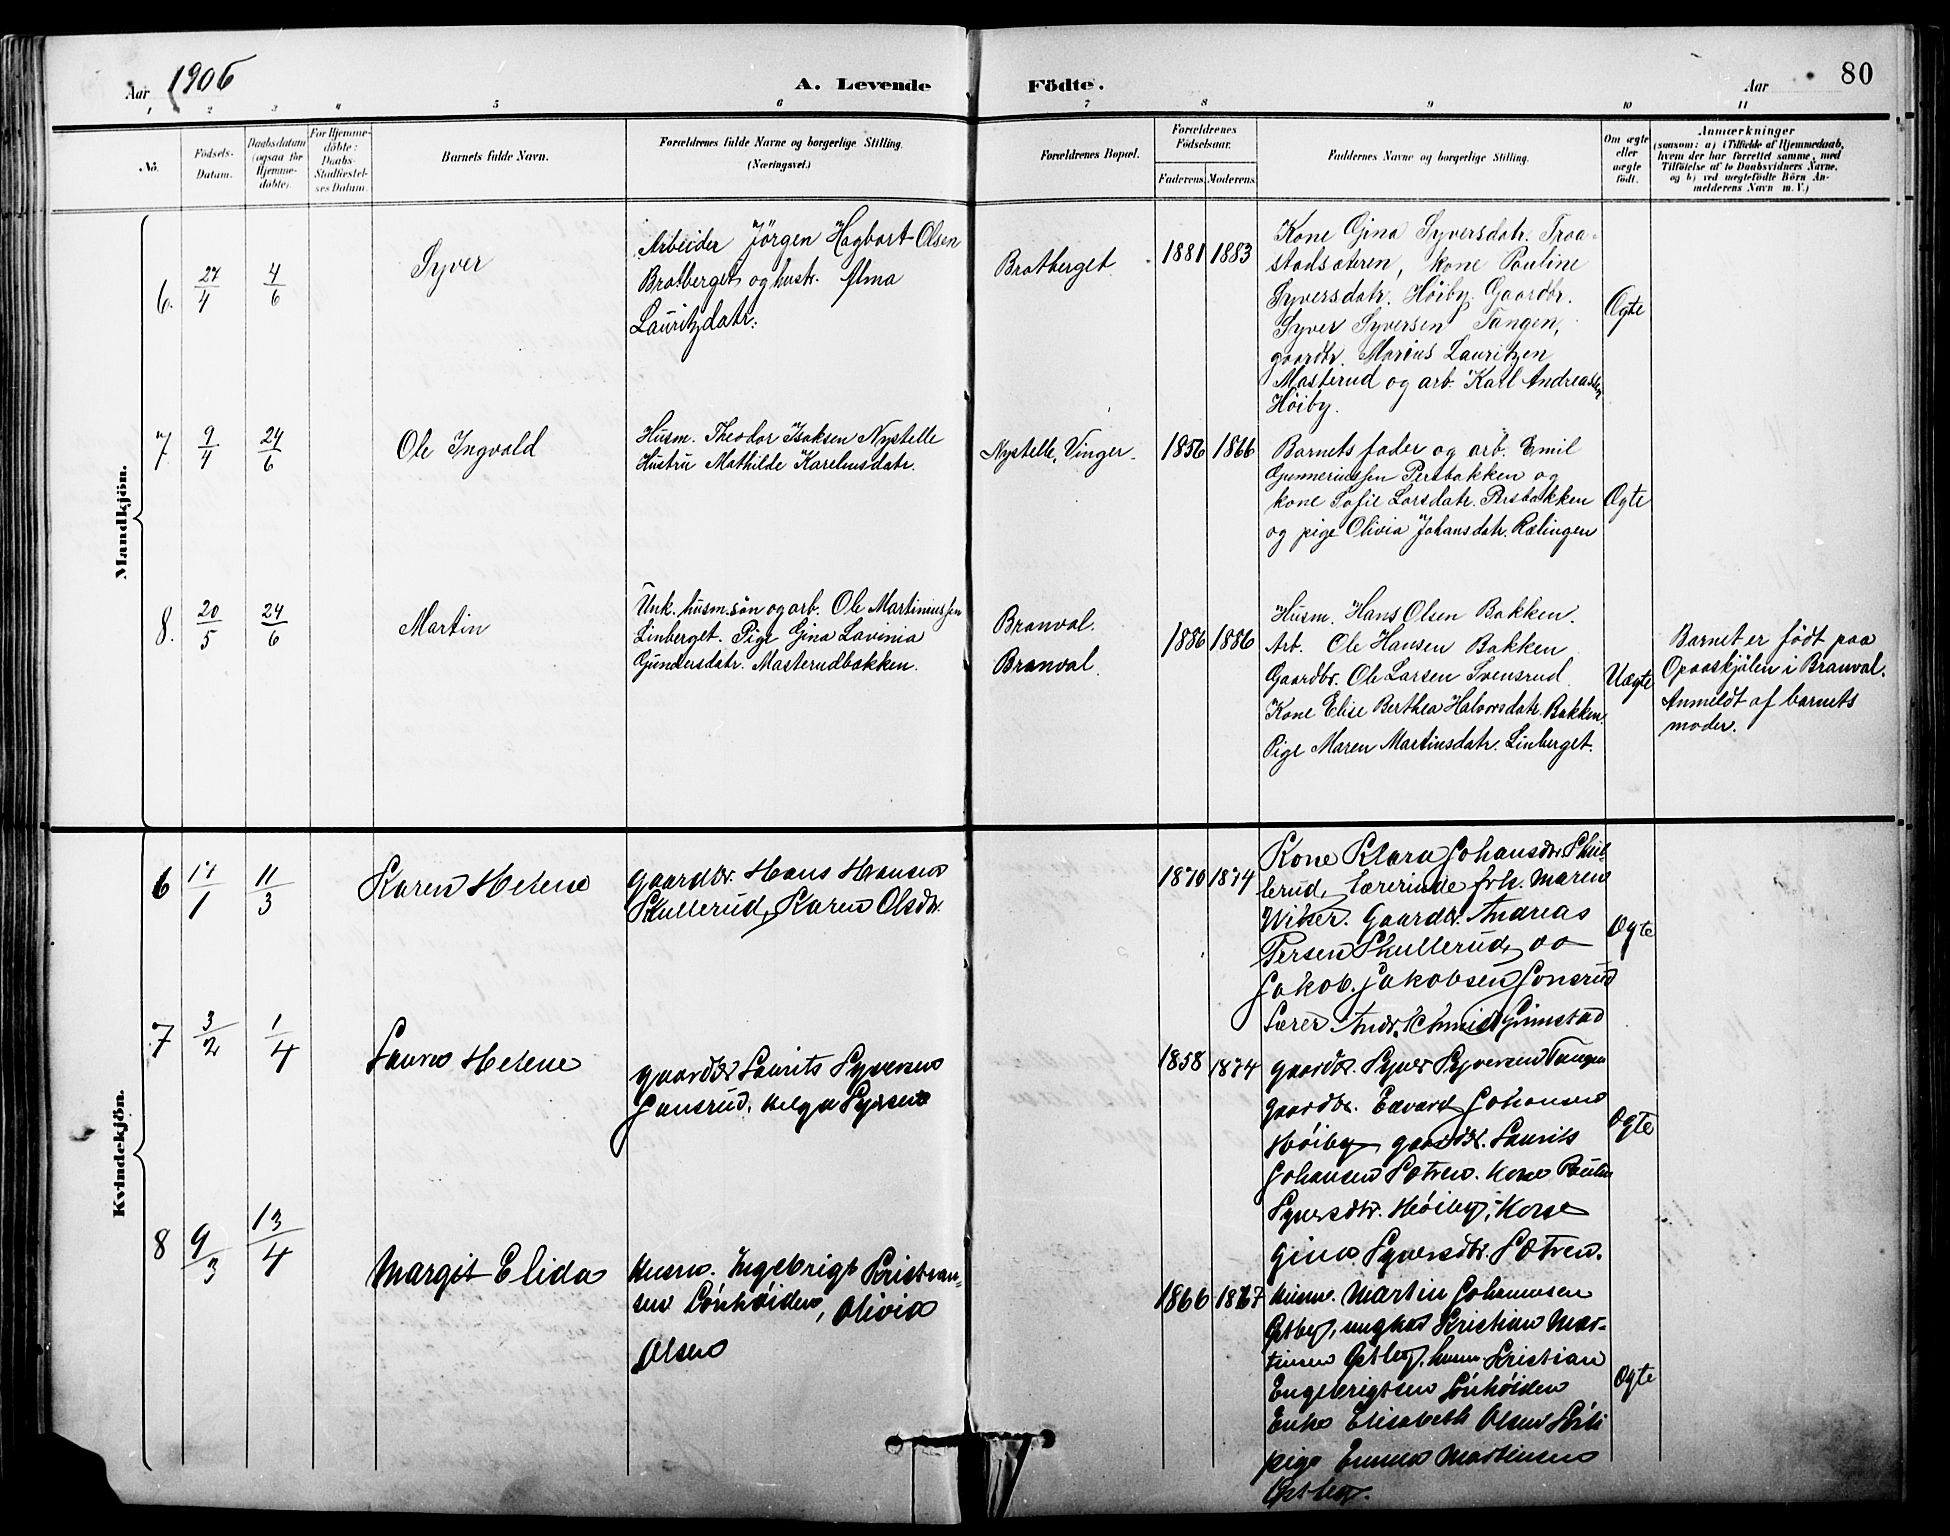 Aar 1906
A. Levende Födte.
Aar
80
1 2 3 4 5 6 7 8 9 10 11
No.
Födsels-
Datum.
Daabsdatum
(ogsaa for
Hjemme-
döbte).
For Hjemme-
döbte:
Daabs-
Stadfæstel-
ses Datum.
Barnets fulde Navn.
Forældrenes fulde Navne og borgerlige Stilling.
(Næringsvei.)
Forældrenes Bopæl.
Forældrenes
Födselsaar.
Faderens Moderens
Faddernes Navne og borgerlige Stilling.
Om ægte
eller
uægte
födt.
Anmærkninger
(saasom: a) i Tilfælde af Hjemmedaab,
hvem der har forrettet samme, med
Tilföielse af to Daabsvidners Navne,
og b) ved uægtefödte Börn An-
melderens Navn m. V.)
Mandkjön.
6. 27/4 4/6
Syver
Arbeider Jörgen Hagbart Olsen
Bratberget og hustr. Alma
Lauritzdatr.
Bratberget
1881 1883
Kone Gina Syversdatr. Traa-
stadsæteren, kone Pauline
Syversdatr. Höiby. Gaardbr.
Syver Syversen Tangen,
gaardbr. Marius Lauritzen
Masterud og arb. Karl Andreassen
Höiby.
Ægte
7 9/4 24/6
Ole Ingvald
Husm. Theodor Isaksen Nystelle
Hustru Mathilde Kareliusdatr.
Nystelle, Vinger
1856 1866
Barnets fader og arb. Emil
Gunneriussen Persbakken og
kone Sofie Larsdatr. Persbakken
og pige Olivia Johansdatr. Rælingen
Ægte
8. 20/5 24/6
Martin
Unk. husm.sön og arb. Ole Martiniussen
Linberget. Pige Gina Lavinia
Gundersdatr. Masterudbakken.
Branval.
Branval.
1886 1886
Husm. Hans Olsen Bakken.
Arb. Ole Hansen Bakken
Gaardbr. Ole Larsen Svensrud
Kone Elise Berthea Halvorsdatr. Bakken.
Pige Maren Martinsdatr. Linberget.
Uægte
Barnet er födt paa
Opaaskjölen i Branval.
Anmeldt af barnets
moder.
Kvindekjön.
6 17/1 11/3
Karen Helene
gaardbr. Hans Hansen
Skullerud, Karen Olsdtr.
1870 1874
Kone Klara Johansdtr Skul-
lerud, lærerinde frk. Maren
Wiker. Gaardbr. Andreas
Persen Skullerud, og
Jakob Jakobsen Jonsrud
Lærer Andr. Schmidt Grimstad
Ægte
7 3/2 1/4
Laura Helene
gaardbr Laurits Syversen
Jonsrud, Helga Syversen
1858 1874
gaardbr. Syver Syversen Tangen
gaardbr. Edvard Johansen
Höiby, gaardbr. Laurits
Johansen Sætren. Kone Paulin
Syversdtr. Höiby, Kone
Gina Syversdtr. Sætren.
Ægte
8 9/3 13/4
Margit Elida
Husm. Ingebrigt Kristian-
sen Lönhöiden, Olivia
Olsen
1866 1867
Husm. Martin Johannesen
Østby, ungkar Kristian Mar-
tinsen Østby, husm. Kristian
Engebrigtsen Lönhöiden
Enke Elisabeth Olsen
pige Emma Martinsen
Østby.
Ægte